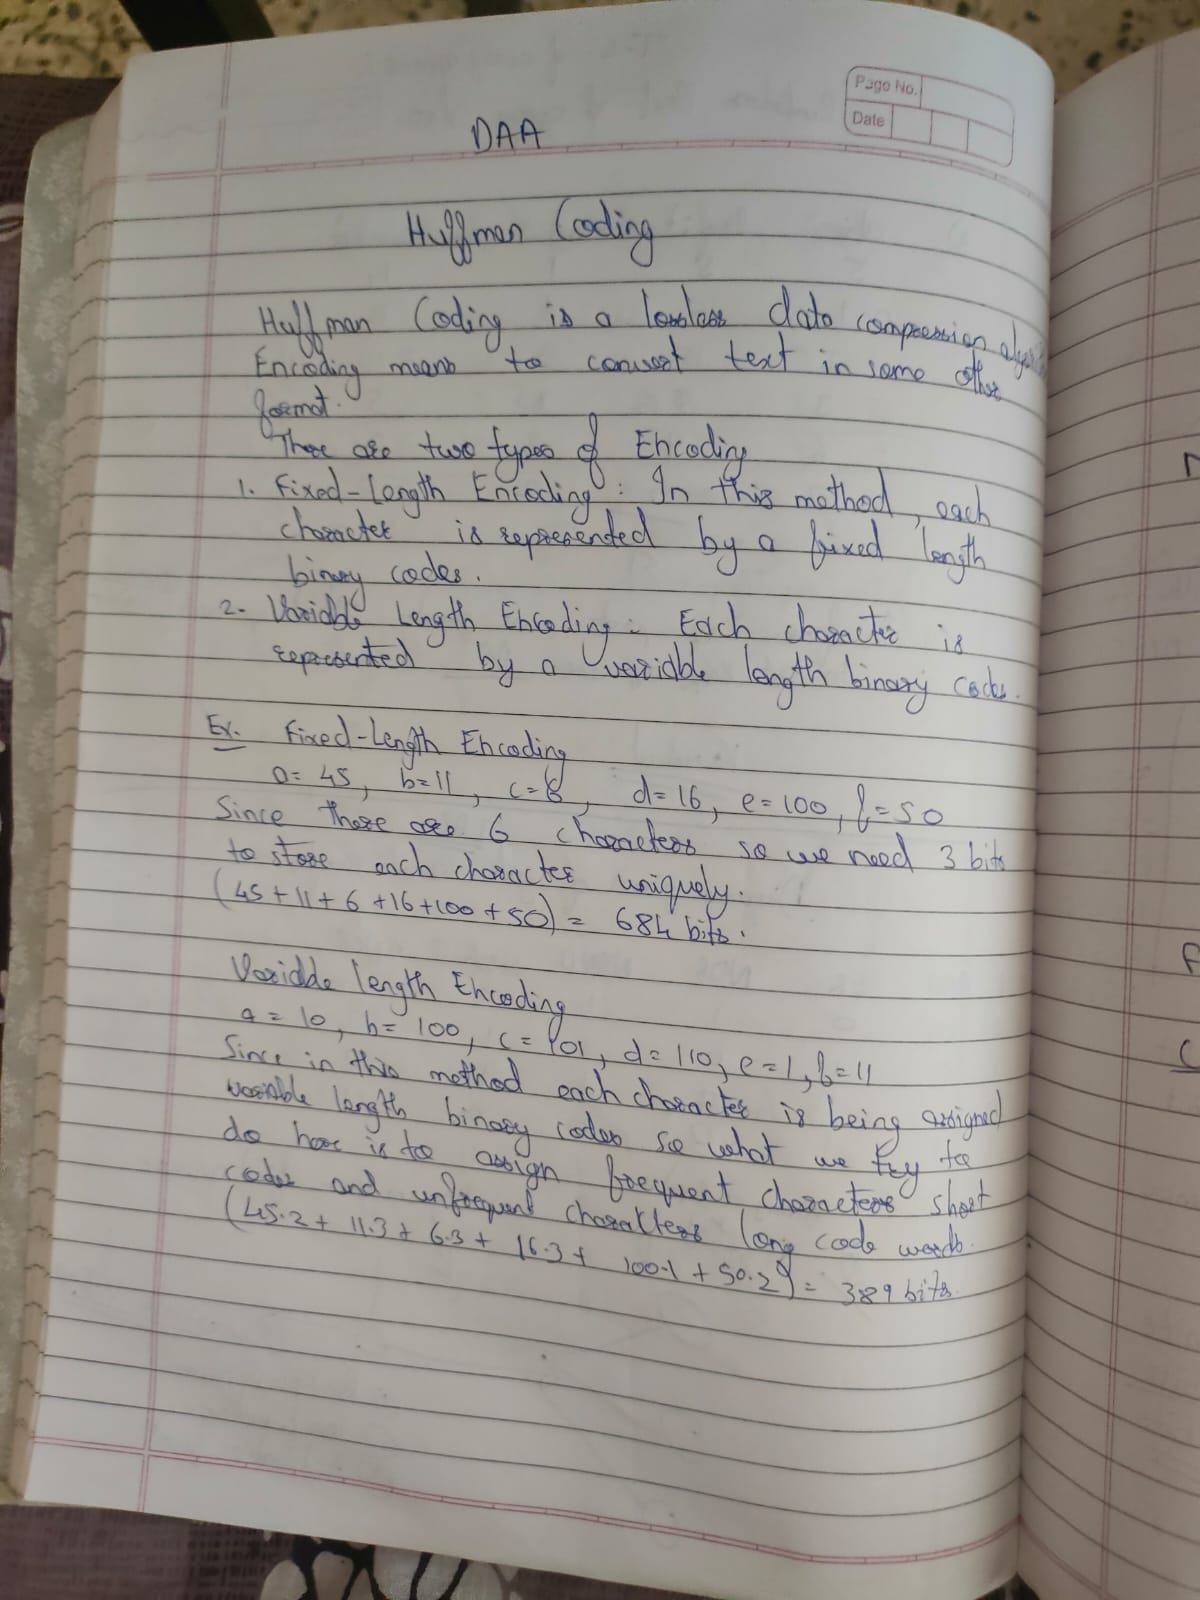 Page No.
Date
DAA
Huffman Coding
Huffman Coding is a lossless data compression
Encoding means to convert text in some other
format.
There are two types of Encoding
1. Fixed-Length Encoding: In this method, each
character is represented by a fixed length
binary codes.
2. Variable Length Encoding: Each character is
represented by a variable length binary codes.
Ex. Fixed-Length Encoding
a=45, b=11, c=6, d=16, e=100, f=50
Since there are 6 characters so we need 3 bits
to store each character uniquely.
(45+11+6+16+100+50) = 684 bits.
Variable length Encoding
a=10, b=100, c=101, d=110, e=1, f=11
Since in this method each character is being assigned
variable length binary codes so what we try to
do here is to assign frequent characters short
codes and unfrequent characters long code words.
(45.2+11.3+6.3+16.3+100.1+50.2) = 389 bits.